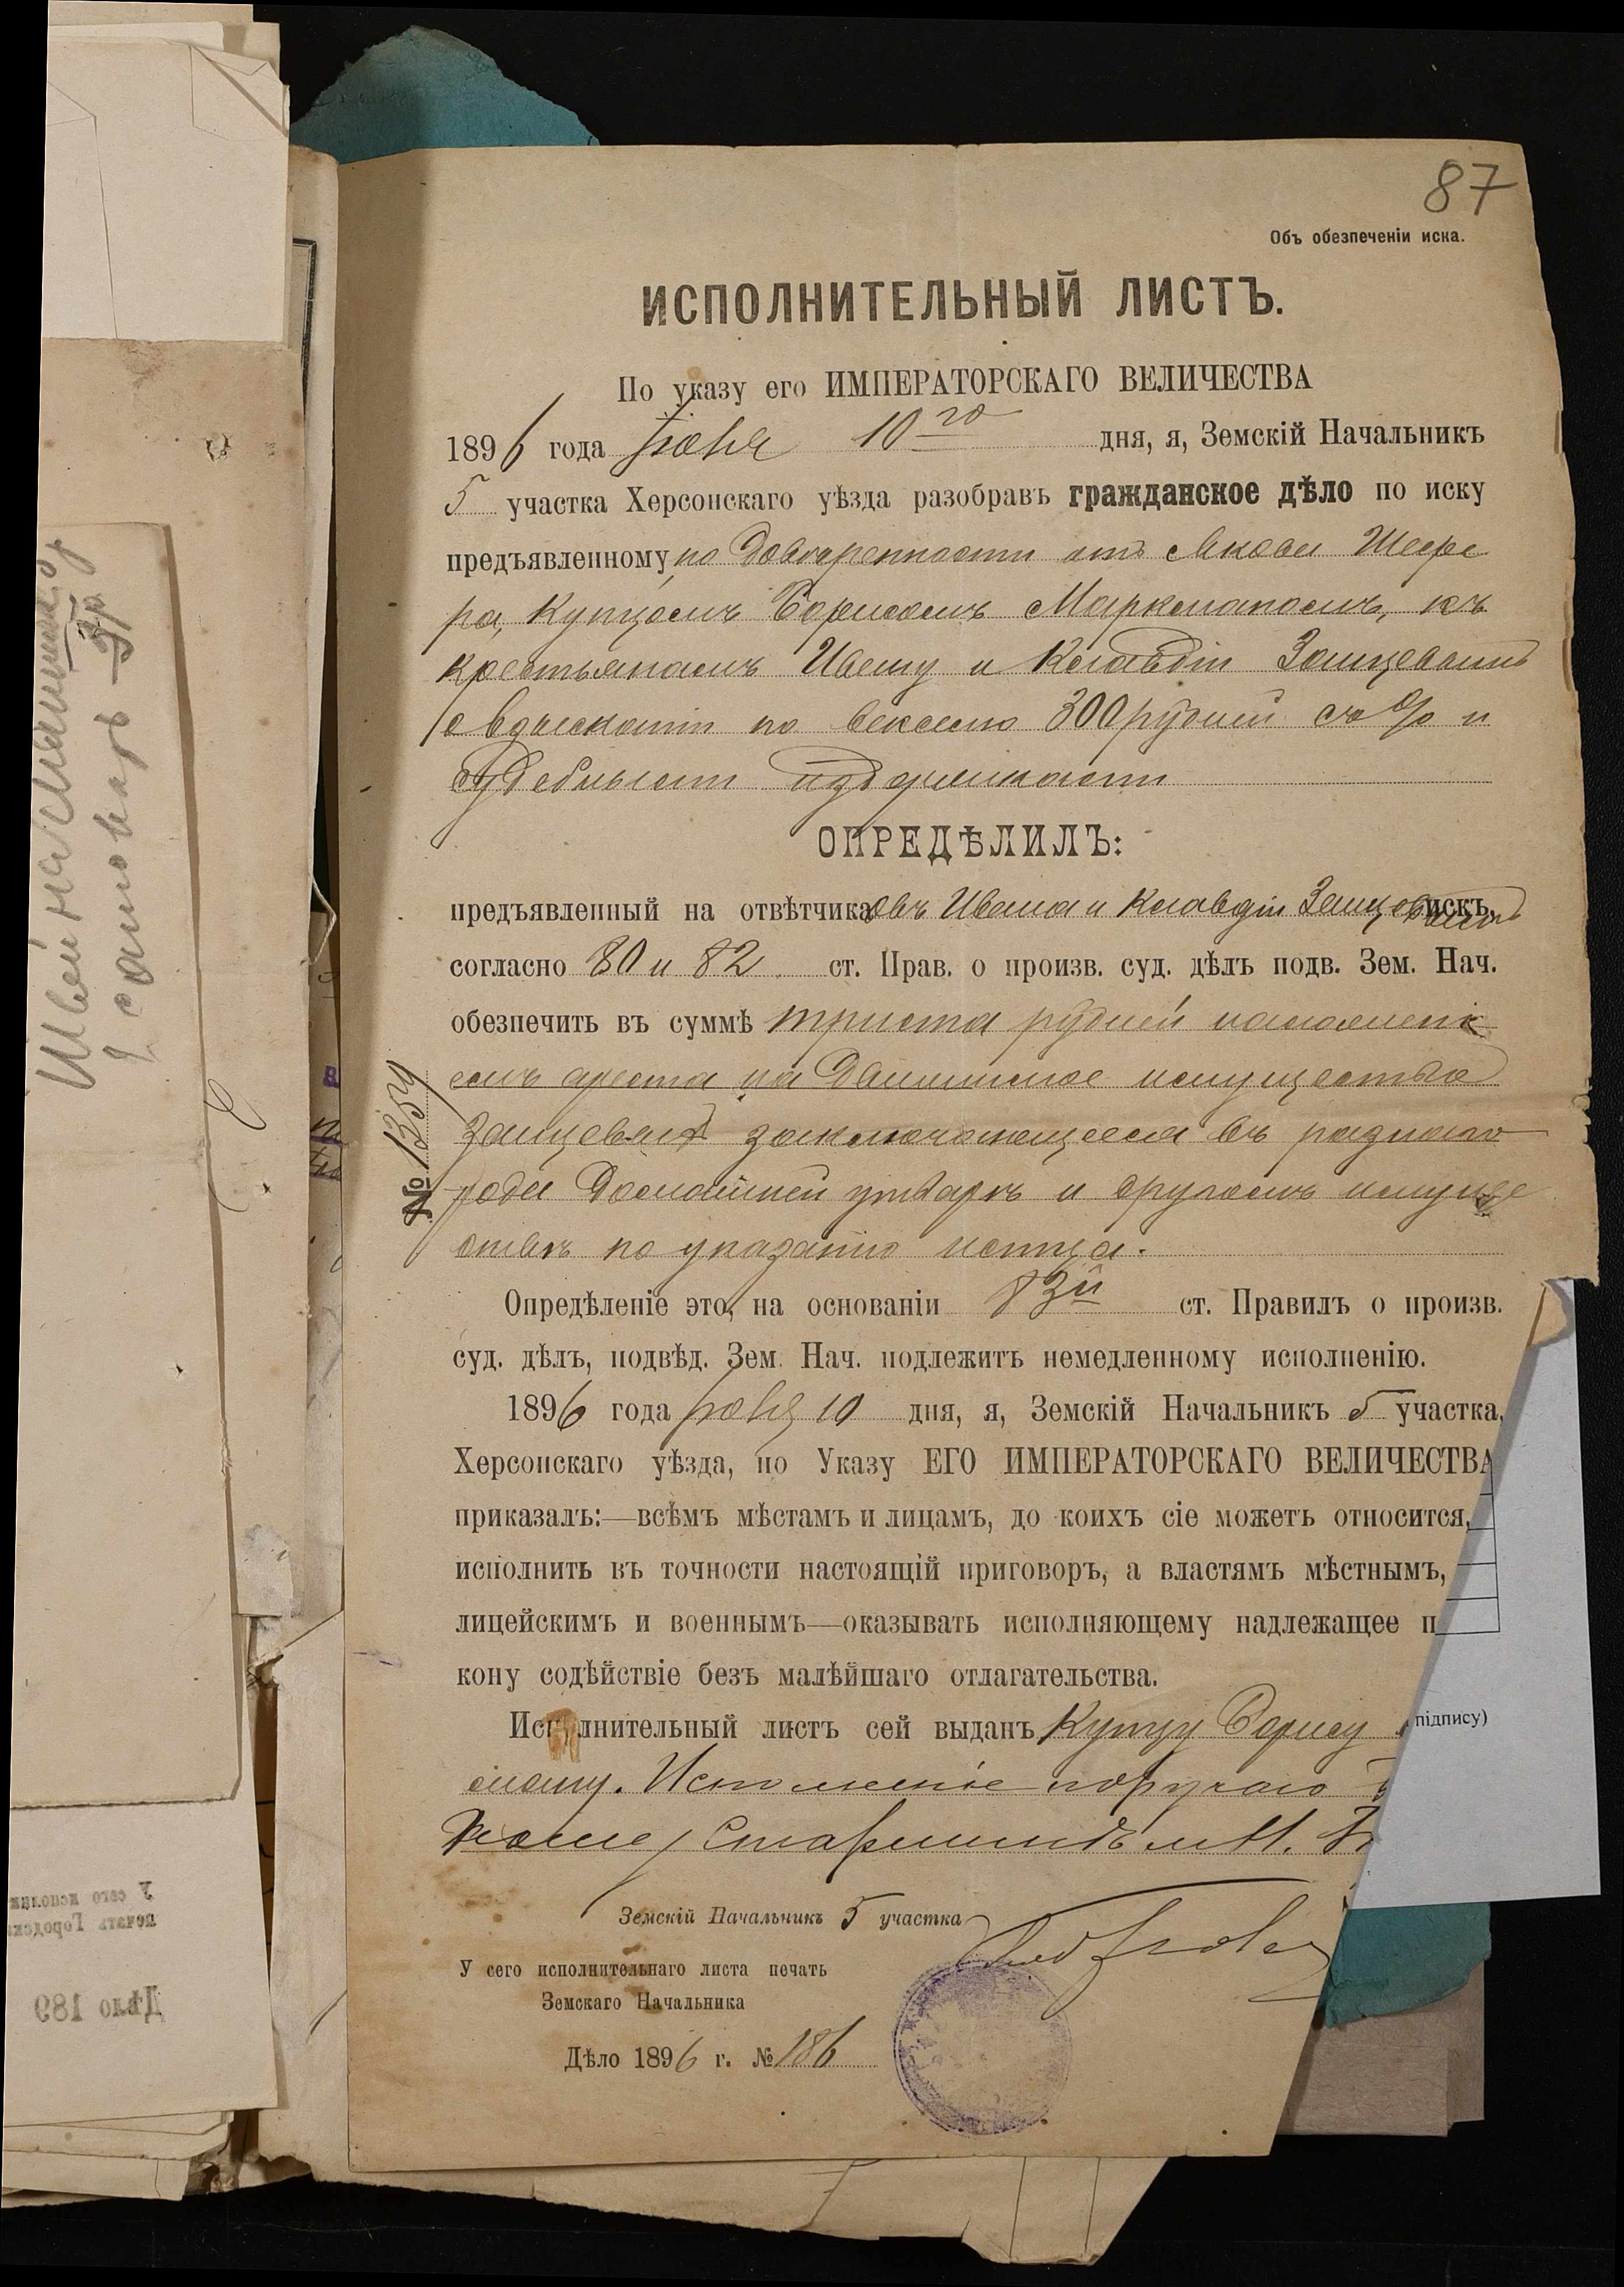 87
Объ обезпеченіи иска.
ИСПОЛНИТЕЛЬНЫЙ ЛИСТЪ.
По указу его ИМПЕРАТОРСКАГО ВЕЛИЧЕСТВА
1896 года Іюня 10го дня, я, Земскій Начальникъ
5 участка Херсонскаго уѣзда разобравъ гражданское дѣло по иску
предъявленному по доверенности отъ Якова
ра, Купцомъ Борисомъ Маркманомъ, къ
крестьянамъ Ивану и Клавдіи Зайцевымъ
о взысканіи по векселю 300 рублей съ % и
судебными издержками
ОПРЕДѢЛИЛЪ:
предъявленный на отвѣтчиковъ Ивана и Клавдіи Зайцевыхъ искъ,
согласно 80 и 82 ст. Прав. о произв. суд. дѣлъ подв. Зем. Нач.
обезпечить въ суммѣ триста рублей наложені
емъ ареста на движимое имущество
Зайцевыхъ заключающееся въ разнаго
рода домашней утвари и другомъ имуще
ствѣ по указанію истца.
№ 1359
Опредѣленіе это, на основаніи 83й ст. Правилъ о произв.
суд. дѣлъ, подвѣд. Зем. Нач. подлежитъ немедленному исполненію.
1896 года Іюня 10 дня, я, Земскій Начальникъ 5 участка,
Херсонскаго уѣзда, по Указу ЕГО ИМПЕРАТОРСКАГО ВЕЛИЧЕСТВА
приказалъ:—всѣмъ мѣстамъ и лицамъ, до коихъ сіе можетъ относится,
исполнить въ точности настоящій приговоръ, а властямъ мѣстнымъ,
лицейскимъ и военнымъ—оказывать исполняющему надлежащее п
кону содѣйствіе безъ малѣйшаго отлагательства.
Исполнительный листъ сей выданъ Купцу Борису
ману. Исполненіе поручаю
Старшинѣ м.
підпису)
Земскій Начальникъ 5 участка
У сего исполнительнаго листа печать
Земскаго Начальника
Дѣло 1896 г. № 186
Швейная машина
самоваръ
У сего исполни
печать Городск
Дѣло 189